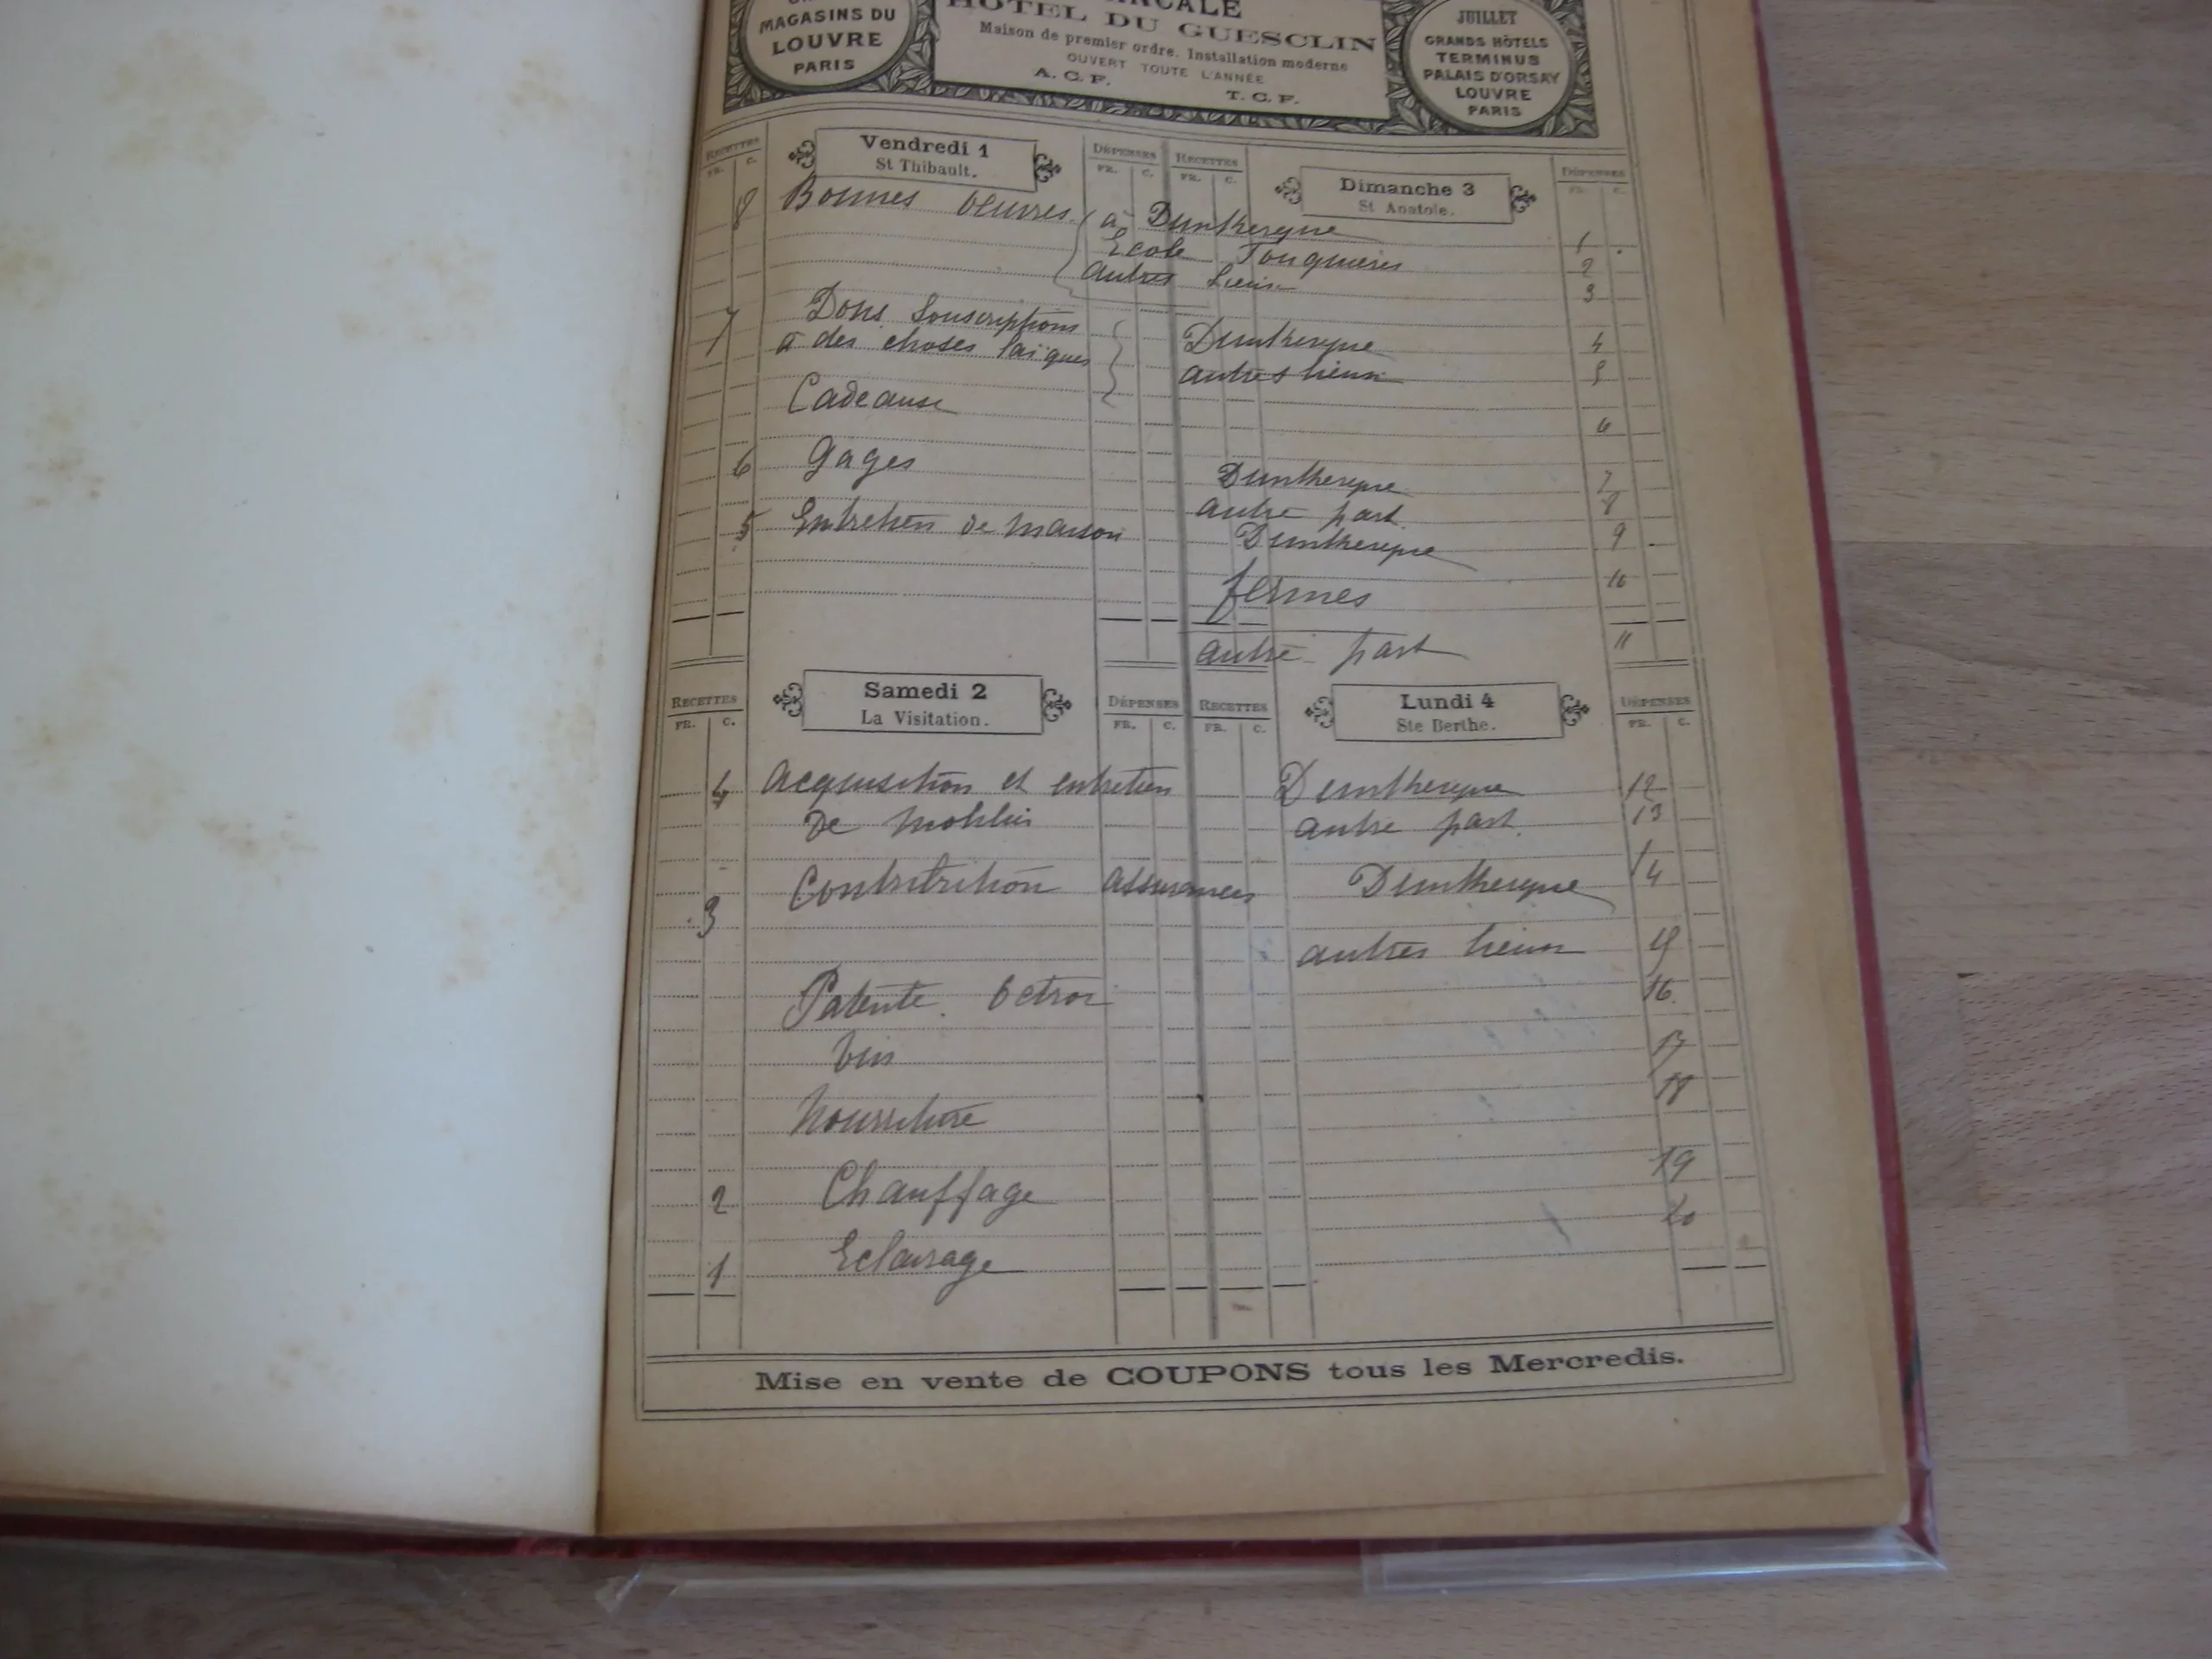 MAGASINS DU
LOUVRE
PARIS
HÔTEL DU GUESCLIN
Maison de premier ordre. Installation moderne
OUVERT TOUTE L'ANNÉE
A. C. F. T. C. F.
JUILLET
GRANDS HÔTELS
TERMINUS
PALAIS D'ORSAY
LOUVRE
PARIS
RECETTES
FR. C.
Vendredi 1
St Thibault.
DÉPENSES
FR. C.
RECETTES
FR. C.
Dimanche 3
St Anatole.
DÉPENSES
FR. C.
8 Bonnes oeuvres à Dunkerque 1
Ecole 2
autres lieux 3
Dons Souscriptions
7 à des choses laïques Dunkerque 4
autres lieux 5
Cadeaux 6
6 Gages Dunkerque 7
autre part. 8
5 Entretien de maison Dunkerque 9
fermes 10
autre part 11
RECETTES
FR. C.
Samedi 2
La Visitation.
DÉPENSES
FR. C.
RECETTES
FR. C.
Lundi 4
Ste Berthe.
DÉPENSES
FR. C.
4 Acquisition et entretien Dunkerque 12
De mobilier autre part. 13
3 Contribution assurances Dunkerque 14
autres lieux 15
Patente. Octroi 16
Vin 17
Nourriture 18
2 Chauffage 19
1 Eclairage 20
Mise en vente de COUPONS tous les Mercredis.